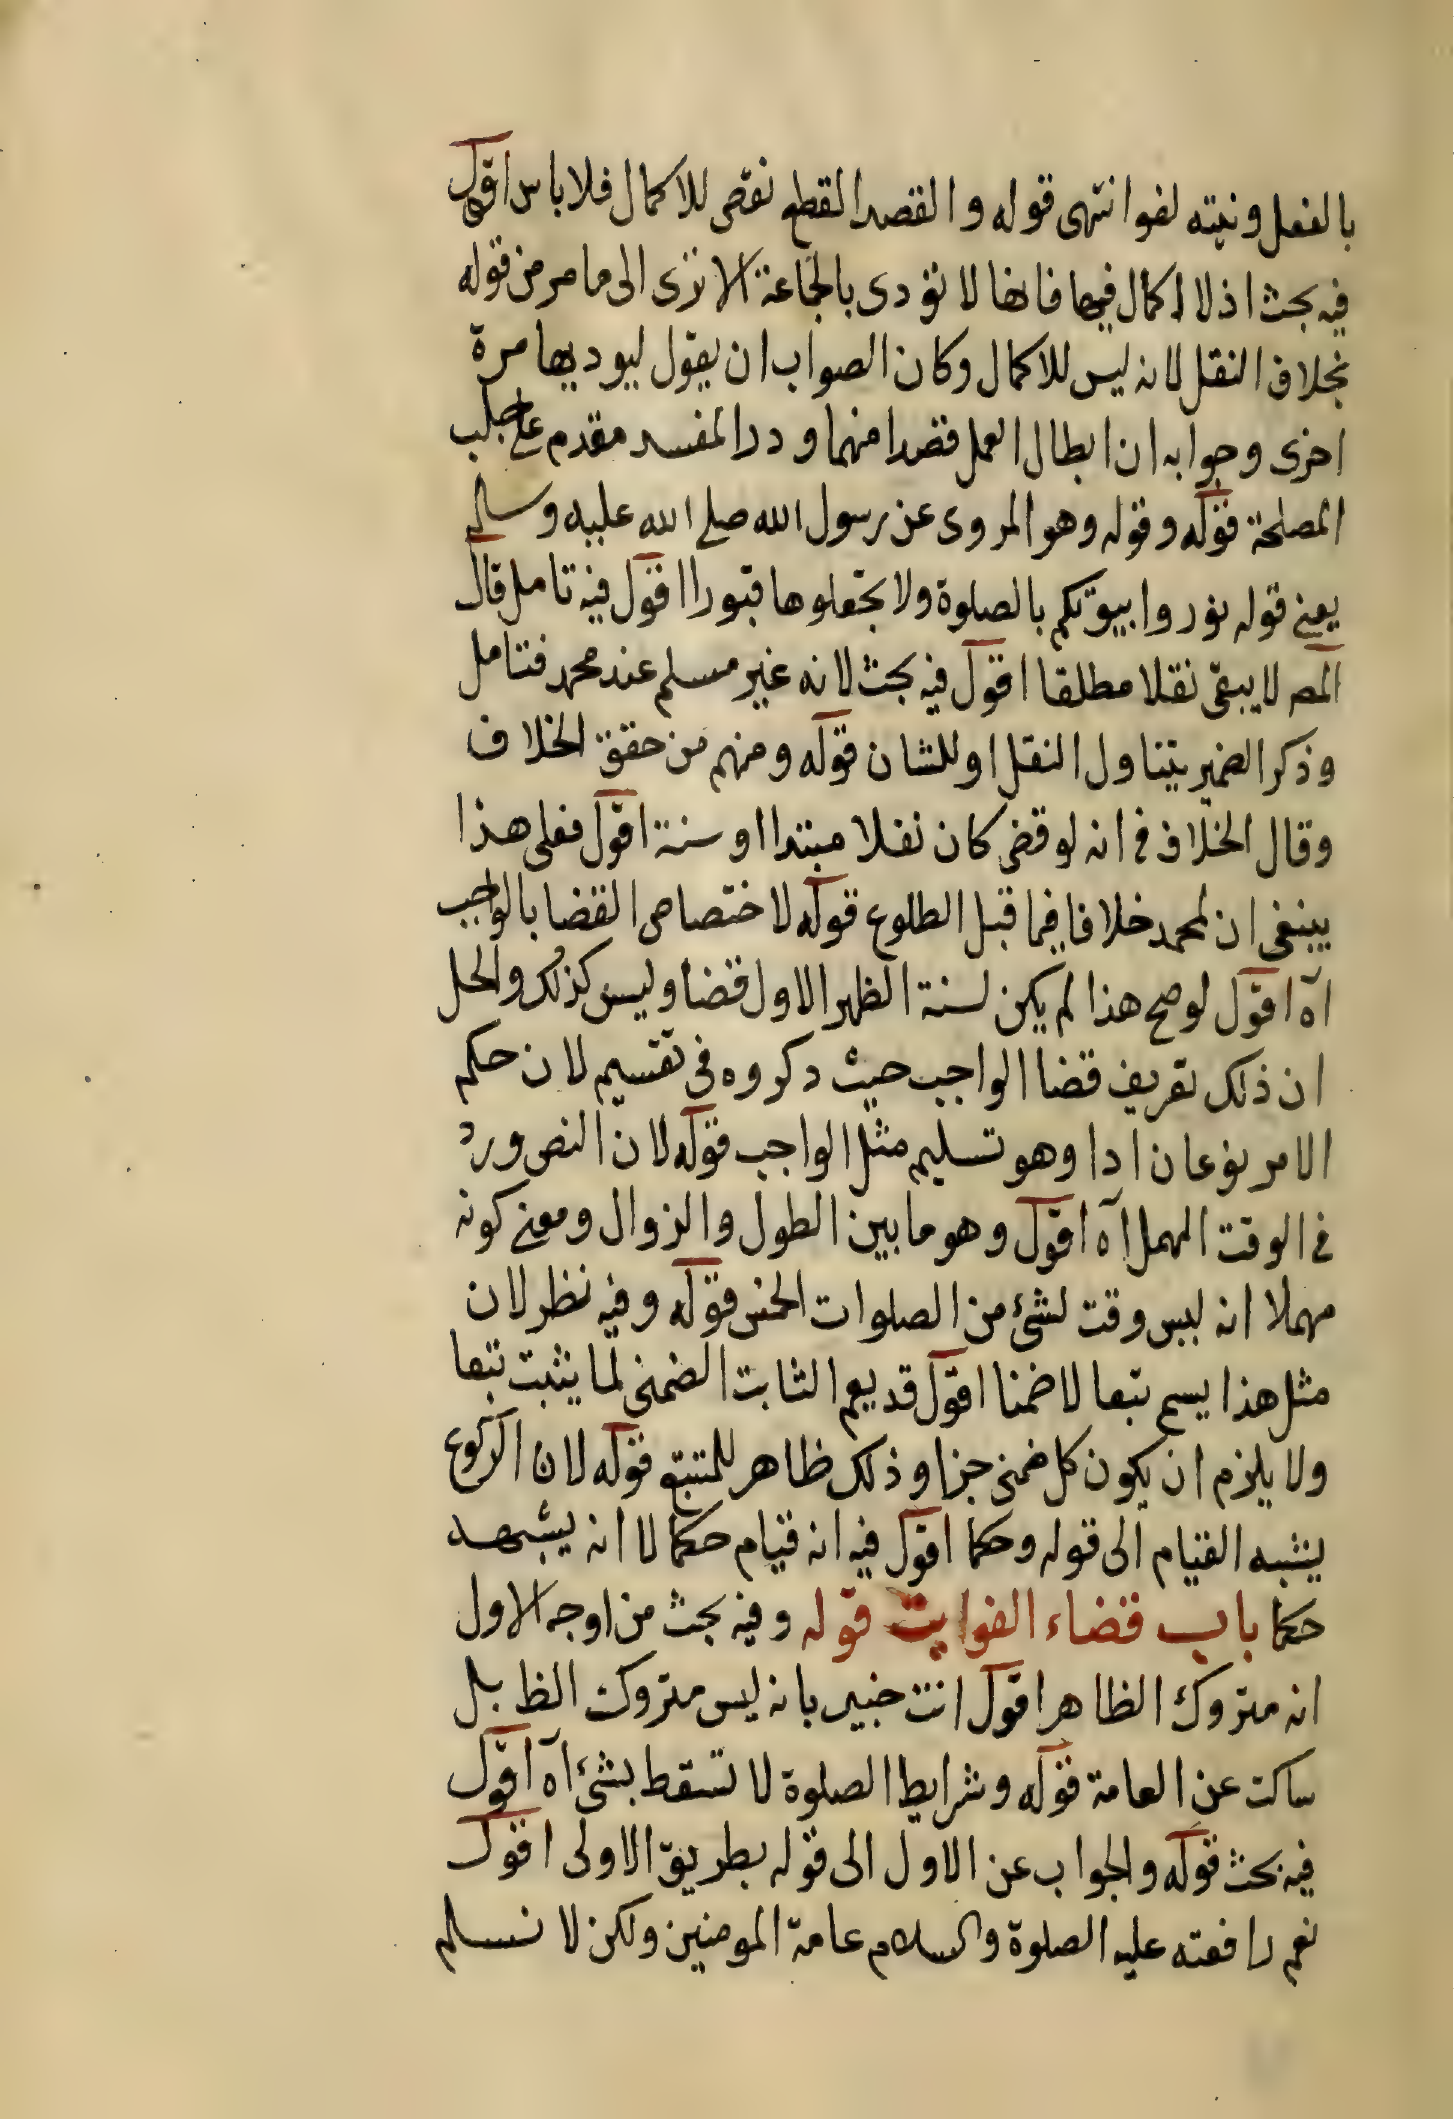 بالفعل ونيته لغو انتهى قوله والقصد القطع نقص للاكمال فلا باس اقول
فيه بحث اذ لا اكمال فيها فانها لا تؤدى بالجماعة الا ترى الى ما مر من قوله
بخلاف النفل لانه ليس للاكمال وكان الصواب ان يقول ليوديها مرة
اخرى وجوابه ان ابطال العمل قصدا منهما ودرا لمفسد مقدم على جلب
المصلحة قوله وقوله وهو المروى عن رسول الله صلى الله عليه وسلم
يعنى قوله نوروا بيوتكم بالصلوة ولا تجعلوها قبورا اقول فيه تامل قال
المص لا يبقى نفلا مطلقا اقول فيه بحث لانه غير مسلم عند محمد فتامل
وذكر الضمير يتناول النفل او للشان قوله ومنهم من حقق الخلاف
وقال الخلاف فى انه لو قضى كان نفلا مبتدا او سنة اقول فعلى هذا
ينبغى ان لمحمد خلافا فيما قبل الطلوع قوله لاختصاص القضا بالواجب
اه اقول لو صح هذا لم يكن لسنة الظهر الاول قضا وليس كذلك والحل
ان ذلك تعريف قضا الواجب حيث دكروه فى تقسيم لان حكم
الامر نوعان ادا وهو تسليم مثل الواجب قوله لان النص ورد
فى الوقت المهمل اه اقول وهو ما بين الطول والزوال ومعنى كونه
مهملا انه ليس وقت لشئ من الصلوات الخمس قوله وفيه نظر لان
مثل هذا يسمى تبعا لا ضمنا اقول قد يعم الثابت الضمنى لما يثبت تبعا
ولا يلزم ان يكون كل ضمنى جزا وذلك ظاهر للمتتبع قوله لان الركوع
يشبه القيام الى قوله وحكما اقول فيه انه قيام حكما لا انه يشبهه
حكما باب قضاء الفوايت قوله وفيه بحث من اوجه الاول
انه متروك الظاهر اقول انت خبير بانه ليس متروك الظ بل
ساكت عن العامة قوله وشرايط الصلوة لا تسقط بشئ اه اقول
فيه بحث قوله والجواب عن الاول الى قوله بطريق الاولى اقول
نعم رافعته عليه الصلوة والسلام عامة المومنين ولكن لا نسلم